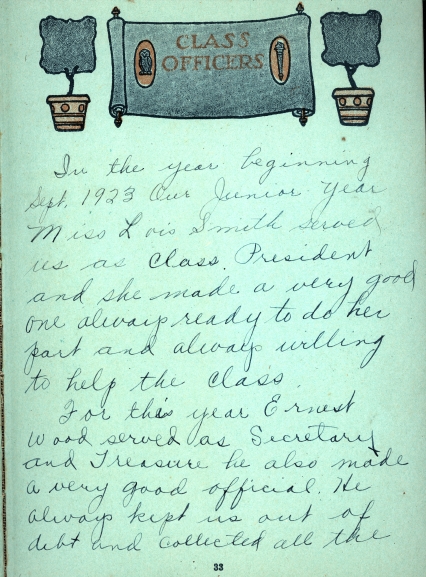 CLASS
OFFICERS
In the year beginning
Sept. 1923 Our Junior Year
Miss Lois Smith served
us as Class President
and she made a very good
one always ready to do her
part and always willing
to help the class.
For this year Ernest
Wood served as Secretary
and Treasure he also made
a very good official. He
always kept us out of
debt and collected all the
33